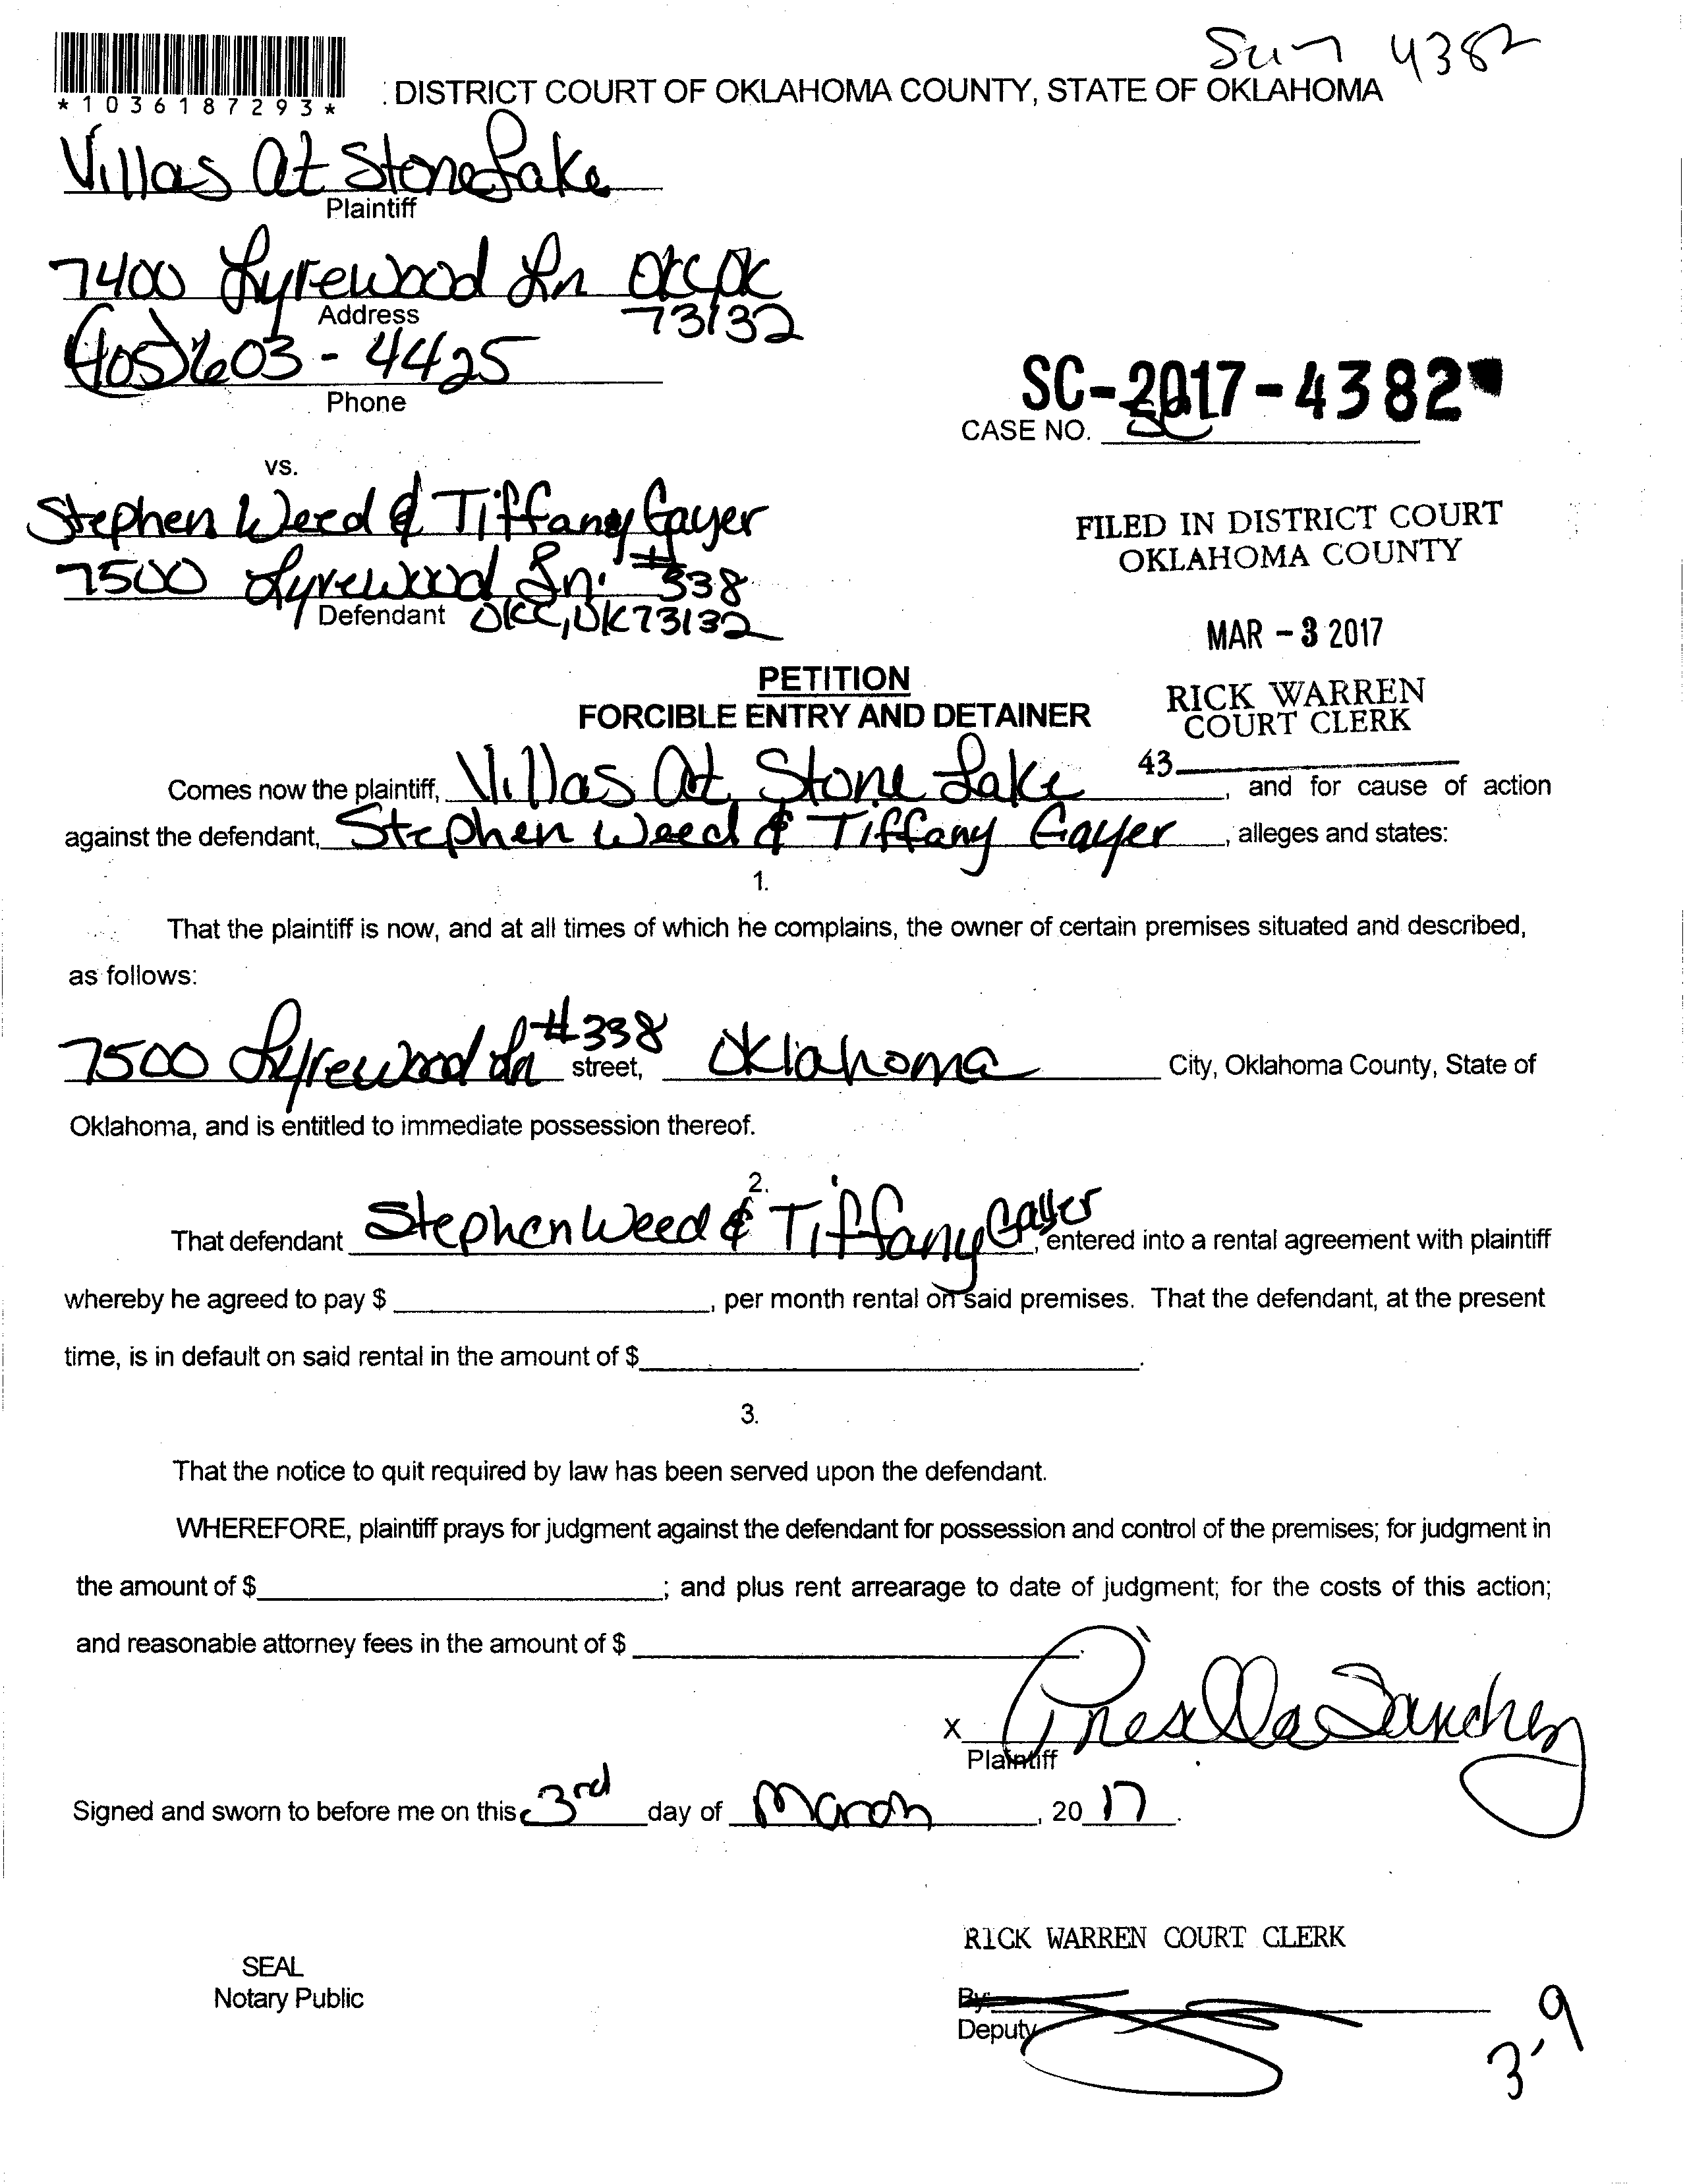 Sun 4382
*1036187293*
DISTRICT COURT OF OKLAHOMA COUNTY, STATE OF OKLAHOMA
Villas At Stone Lake
Plaintiff
7400 Lyrewood Ln OKC, OK
73132
Address
(405) 603-4425
Phone
SC-2017-4382
CASE NO. SC
vs.
Stephen Weed & Tiffany Gayer
7500 Lyrewood Ln. #338
Defendant OKC, OK 73132
FILED IN DISTRICT COURT
OKLAHOMA COUNTY
MAR - 3 2017
RICK WARREN
COURT CLERK
43
PETITION
FORCIBLE ENTRY AND DETAINER
Comes now the plaintiff, Villas At Stone Lake, and for cause of action
against the defendant, Stephen Weed & Tiffany Gayer, alleges and states:
1.
That the plaintiff is now, and at all times of which he complains, the owner of certain premises situated and described,
as follows:
7500 Lyrewood Ln #338 street, Oklahoma City, Oklahoma County, State of
Oklahoma, and is entitled to immediate possession thereof.
2.
That defendant Stephen Weed & Tiffany Gayer, entered into a rental agreement with plaintiff
whereby he agreed to pay $ , per month rental on said premises. That the defendant, at the present
time, is in default on said rental in the amount of $ .
3.
That the notice to quit required by law has been served upon the defendant.
WHEREFORE, plaintiff prays for judgment against the defendant for possession and control of the premises; for judgment in
the amount of $ ; and plus rent arrearage to date of judgment; for the costs of this action;
and reasonable attorney fees in the amount of $ .
x Priscilla Sanchez
Plaintiff
Signed and sworn to before me on this 3rd day of March, 20 17.
RICK WARREN COURT CLERK
SEAL
Notary Public
By:
Deputy
3-9